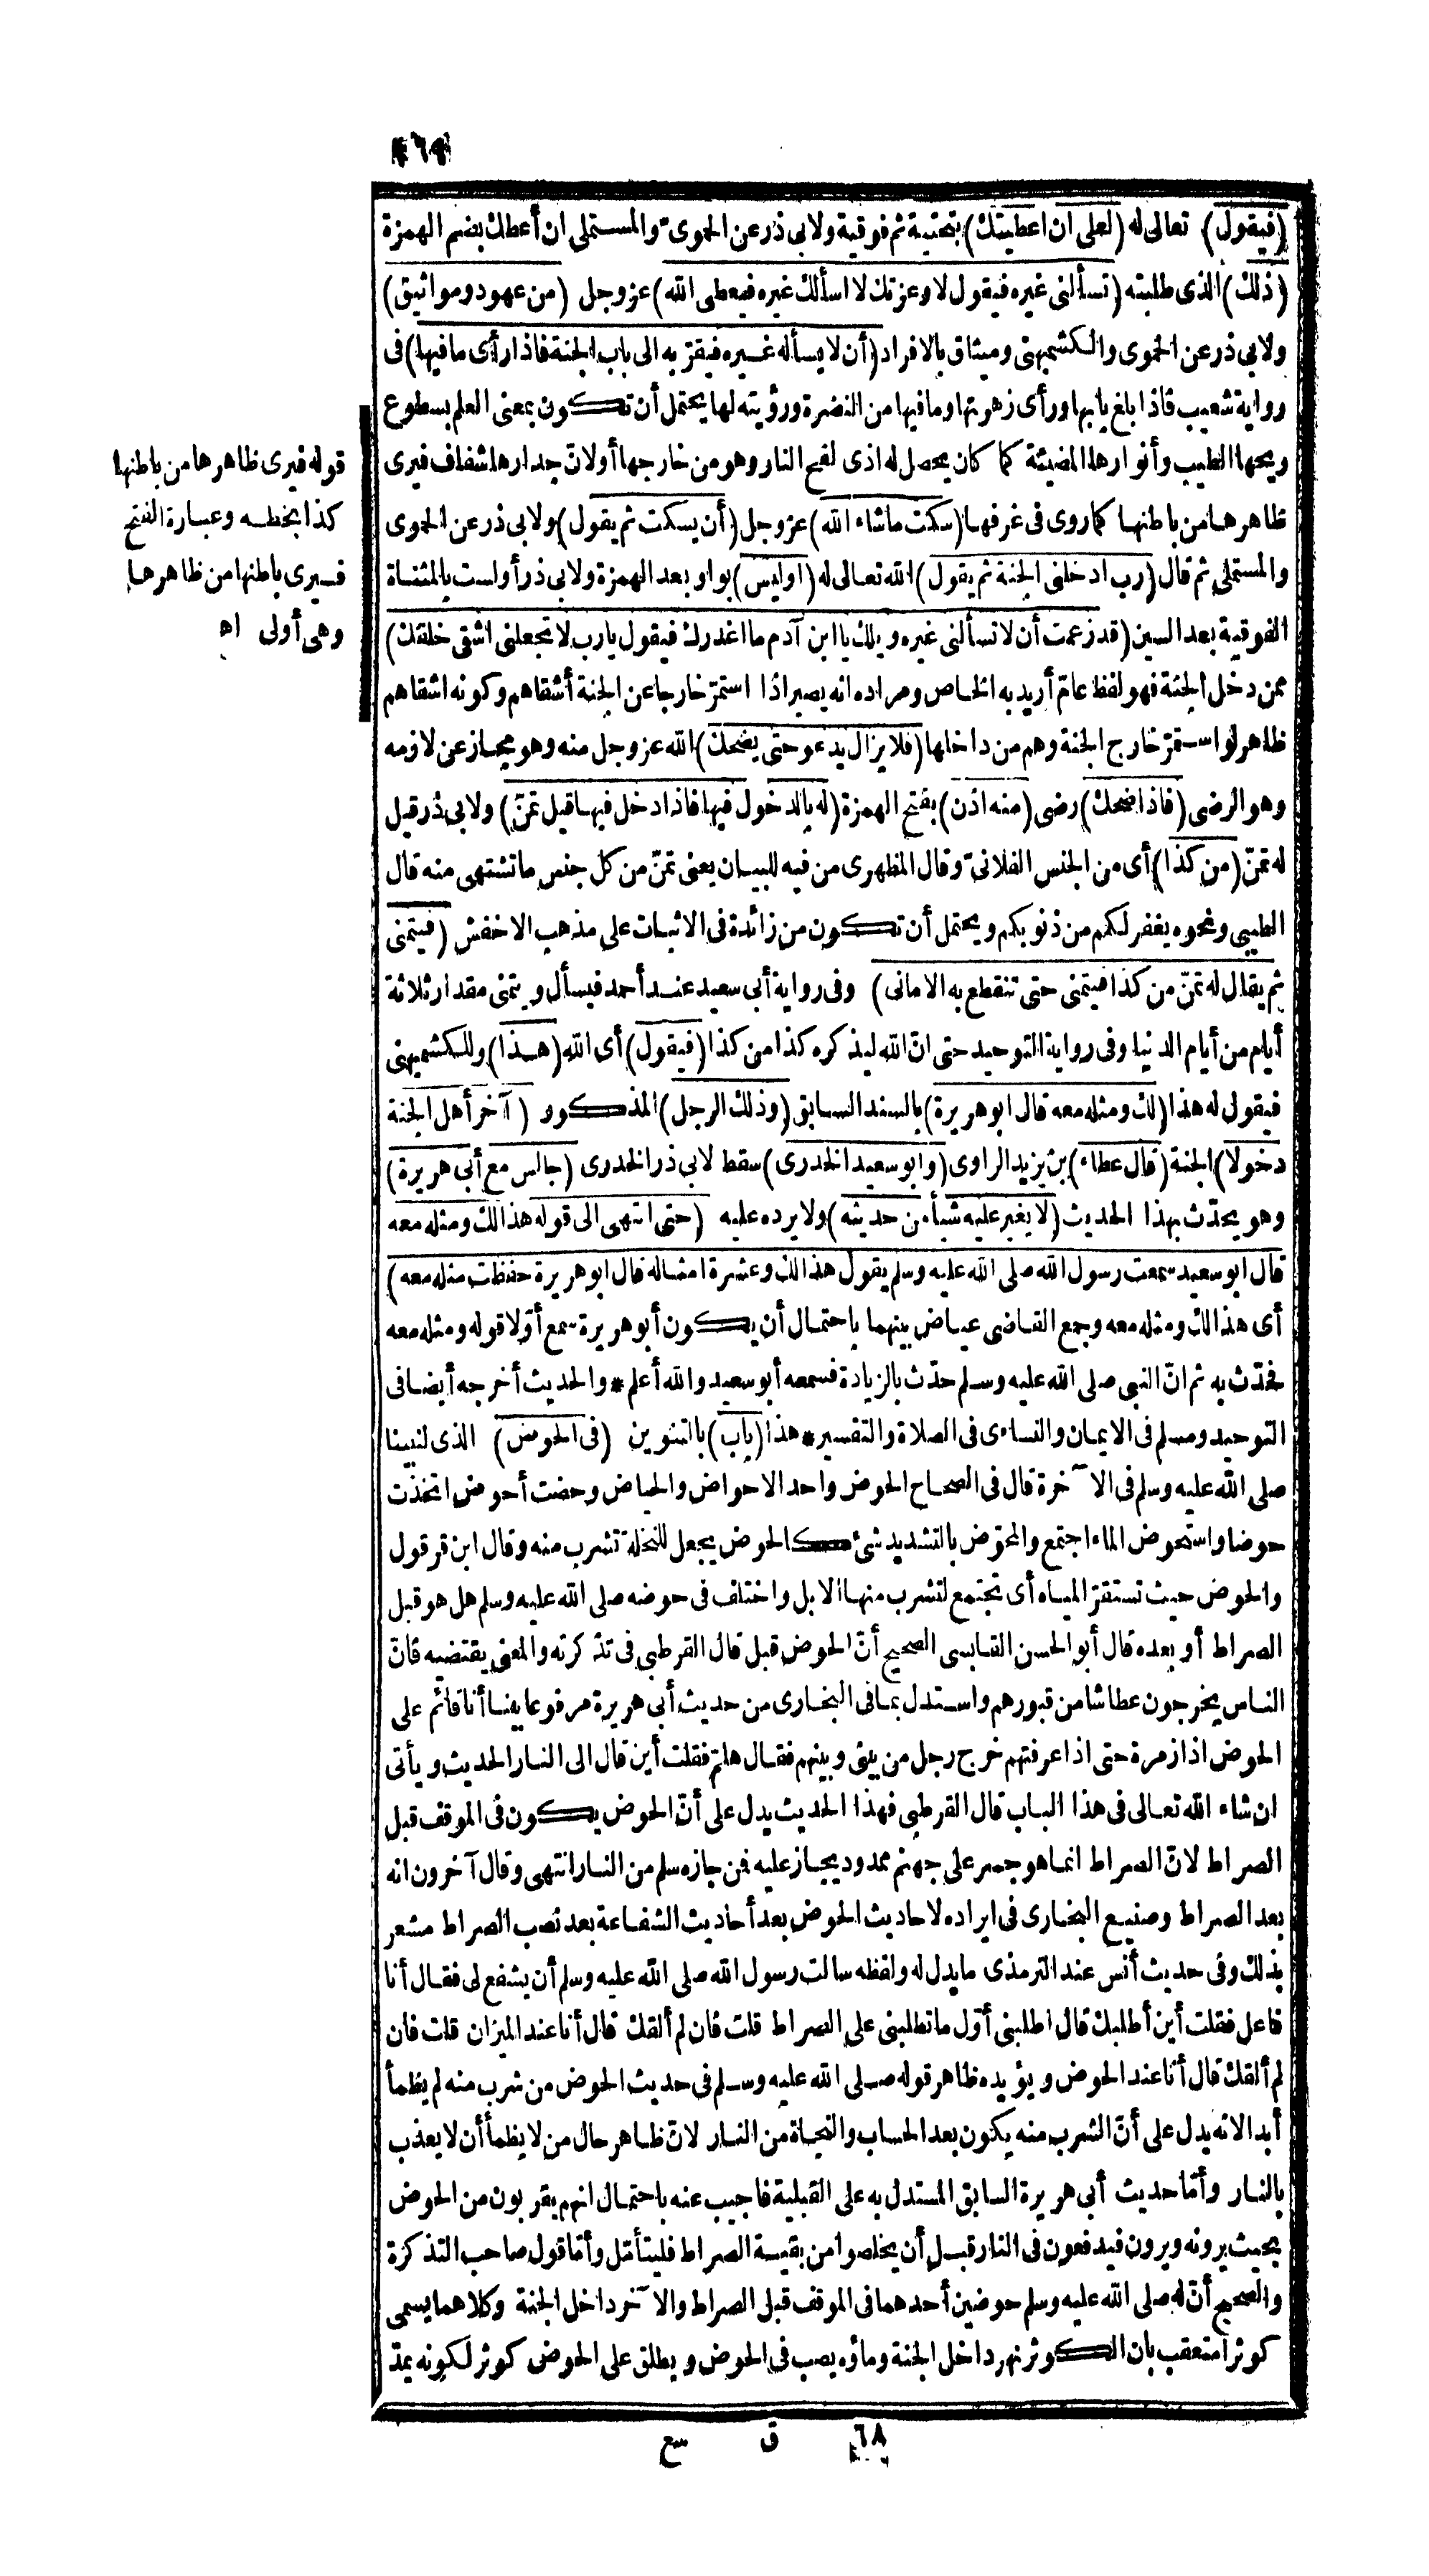 (فيقول) تعالى له (لعلى ان اعطيتك) بتحتية ثم فوقية ولابى ذر عن الحموى والمستملى ان أعطك بضم الهمزة
(ذلك) الذى طلبته (تسألنى غيره فيقول لا وعزتك لا اسألك غيره فيعطى الله) عز وجل (من عهود ومواثيق)
ولابى ذر عن الحموى والكشميهنى وميثاق بالافراد (أن لا يسأله غيره فيقرّبه الى باب الجنة فاذا رأى ما فيها) فى
رواية شعيب فاذا بلغ بابها ورأى زهرتها وما فيها من النضرة ورؤيته لها يحتمل أن تكون بمعنى العلم بسطوع
ريحها الطيب وأنوارها المضيئة كما كان يحصل له اذى لفح النار وهو من خارجها أولانّ جدارها شفاف فيرى
ظاهرها من باطنها كما روى فى غرفها (سكت ماشاء الله) عز وجل (أن يسكت ثم يقول) ولابى ذر عن الحموى
والمستملى ثم قال (رب ادخلنى الجنة ثم يقول) الله تعالى له (اوليس) بواو بعد الهمزة ولابى ذر أولست بالمثناة
الفوقية بعد السين (قد زعمت أن لا تسألنى غيره ويلك يا ابن آدم ما اغدرك فيقول يارب لا تجعلنى اشقى خلقك)
ممن دخل الجنة فهو لفظ عامّ أريد به الخاص ومراده انه يصير اذا استمرّ خارجا عن الجنة أشقاهم وكونه اشقاهم
ظاهر لو استقرّ خارج الجنة وهم من داخلها (فلا يزال يدعو حتى يضحك) الله عز وجل منه وهو مجاز عن لازمه
وهو الرضى (فاذا ضحك) رضى (منه اذن) بفتح الهمزة (له بالدخول فيها فاذا دخل فيها قيل تمنّ) ولابى ذر قيل
له تمنّ (من كذا) أى من الجنس الفلانىّ وقال المظهرى من فيه للبيان يعنى تمنّ من كل جنس ما تشتهى منه قال
الطيبى ونحوه يغفر لكم من ذنوبكم ويحتمل أن تكون من زائدة فى الاثبات على مذهب الاخفش (فيتمنى
ثم يقال له تمنّ من كذا فيتمنى حتى تنقطع به الامانى) وفى رواية أبى سعيد عند أحمد فيسأل ويتمنى مقدار ثلاثة
أيام من أيام الدنيا وفى رواية التوحيد حتى انّ الله ليذكره كذا من كذا (فيقول) أى الله (هذا) وللكشميهنى
فيقول له هذا (لك ومثله معه قال ابو هريرة) بالسند السابق (وذلك الرجل) المذكور (آخر أهل الجنة
دخولا) الجنة (قال عطاء) بن يزيد الراوى (وابو سعيد الخدرى) سقط لابى ذر الخدرى (جالس مع أبى هريرة)
وهو يحدّث بهذا الحديث (لا يغير عليه شيأ من حديثه) ولا يرده عليه (حتى انتهى الى قوله هذا لك ومثله معه
قال ابو سعيد سمعت رسول الله صلى الله عليه وسلم يقول هذا لك وعشرة امثاله قال ابو هريرة حفظت مثله معه)
أى هذا لك ومثله معه وجمع القاضى عياض بينهما باحتمال أن يكون أبو هريرة سمع أوّلا قوله ومثله معه
فحدّث به ثم انّ النبى صلى الله عليه وسلم حدّث بالزيادة فسمعه أبو سعيد والله أعلم * والحديث أخرجه أيضا فى
التوحيد ومسلم فى الايمان والنساءى فى الصلاة والتفسير * هذا (باب) بالتنوين (فى الحوض) الذى لنبينا
صلى الله عليه وسلم فى الآخرة قال فى الصحاح الحوض واحد الاحواض والحياض وحضت أحوض اتخذت
حوضا واستحوض الماء اجتمع والمحوّض بالتشديد شئ كالحوض يجعل للنخلة تشرب منه وقال ابن قرقول
والحوض حيث تستقرّ المياه أى تجتمع لتشرب منها الابل واختلف فى حوضه صلى الله عليه وسلم هل هو قبل
الصراط أو بعده قال أبو الحسن القابسى الصحيح أنّ الحوض قبل قال القرطبى فى تذكرته والمعنى يقتضيه فانّ
الناس يخرجون عطاشا من قبورهم واستدل بما فى البخارى من حديث أبى هريرة مرفوعا بينا أنا قائم على
الحوض اذا زمرة حتى اذا عرفتهم خرج رجل من بينى وبينهم فقال هلمّ فقلت أين قال الى النار الحديث ويأتى
ان شاء الله تعالى فى هذا الباب قال القرطبى فهذا الحديث يدل على أنّ الحوض يكون فى الموقف قبل
الصراط لانّ الصراط انما هو جسر على جهنم ممدود يجاز عليه فمن جازه سلم من النار انتهى وقال آخرون انه
بعد الصراط وصنيع البخارى فى ايراده لاحاديث الحوض بعد أحاديث الشفاعة بعد نصب الصراط مشعر
بذلك وفى حديث أنس عند الترمذى ما يدل له ولفظه سالت رسول الله صلى الله عليه وسلم أن يشفع لى فقال أنا
فاعل فقلت أين أطلبك قال اطلبنى أوّل ما تطلبنى على الصراط قلت فان لم ألقك قال أنا عند الميزان قلت فان
لم ألقك قال أنا عند الحوض ويؤيده ظاهر قوله صلى الله عليه وسلم فى حديث الحوض من شرب منه لم يظمأ
أبدا لانه يدل على أنّ الشرب منه يكون بعد الحساب والنجاة من النار لانّ ظاهر حال من لا يظمأ أن لا يعذب
بالنار وأمّا حديث أبى هريرة السابق المستدل به على القبلية فاجيب عنه باحتمال انهم يقربون من الحوض
بحيث يرونه ويرون فيدفعون فى النار قبل أن يخلصوا من بقية الصراط فليتأمّل وأمّا قول صاحب التذكرة
والصحيح أنّ له صلى الله عليه وسلم حوضين أحدهما فى الموقف قبل الصراط والآخر داخل الجنة وكلاهما يسمى
كوثرا متعقب بان الكوثر نهر داخل الجنة وماؤه يصب فى الحوض ويطلق على الحوض كوثر لكونه يمدّ
قوله فيرى ظاهرها من باطنها
كذا بخطه وعبارة الفتح
فيرى باطنها من ظاهرها
وهى أولى اه
٦٨ ق سع